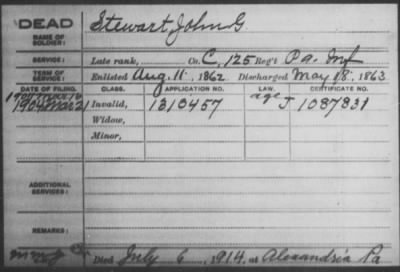 DEAD
NAME OF SOLDIER: Stewart, John G.
SERVICE: Late rank, Co. C, 125 Reg't Pa. Inf
TERM OF SERVICE: Enlisted Aug. 11, 1862 Discharged May 18, 1863
DATE OF FILING. CLASS. APPLICATION NO. LAW. CERTIFICATE NO.
1904 Mar 21 Invalid, 1310457 age J 1087831
Widow,
Minor,
ADDITIONAL SERVICES:
REMARKS:
Died July 6, 1914, at Alexandria Pa